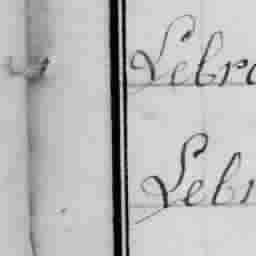 Lebr
Lebr